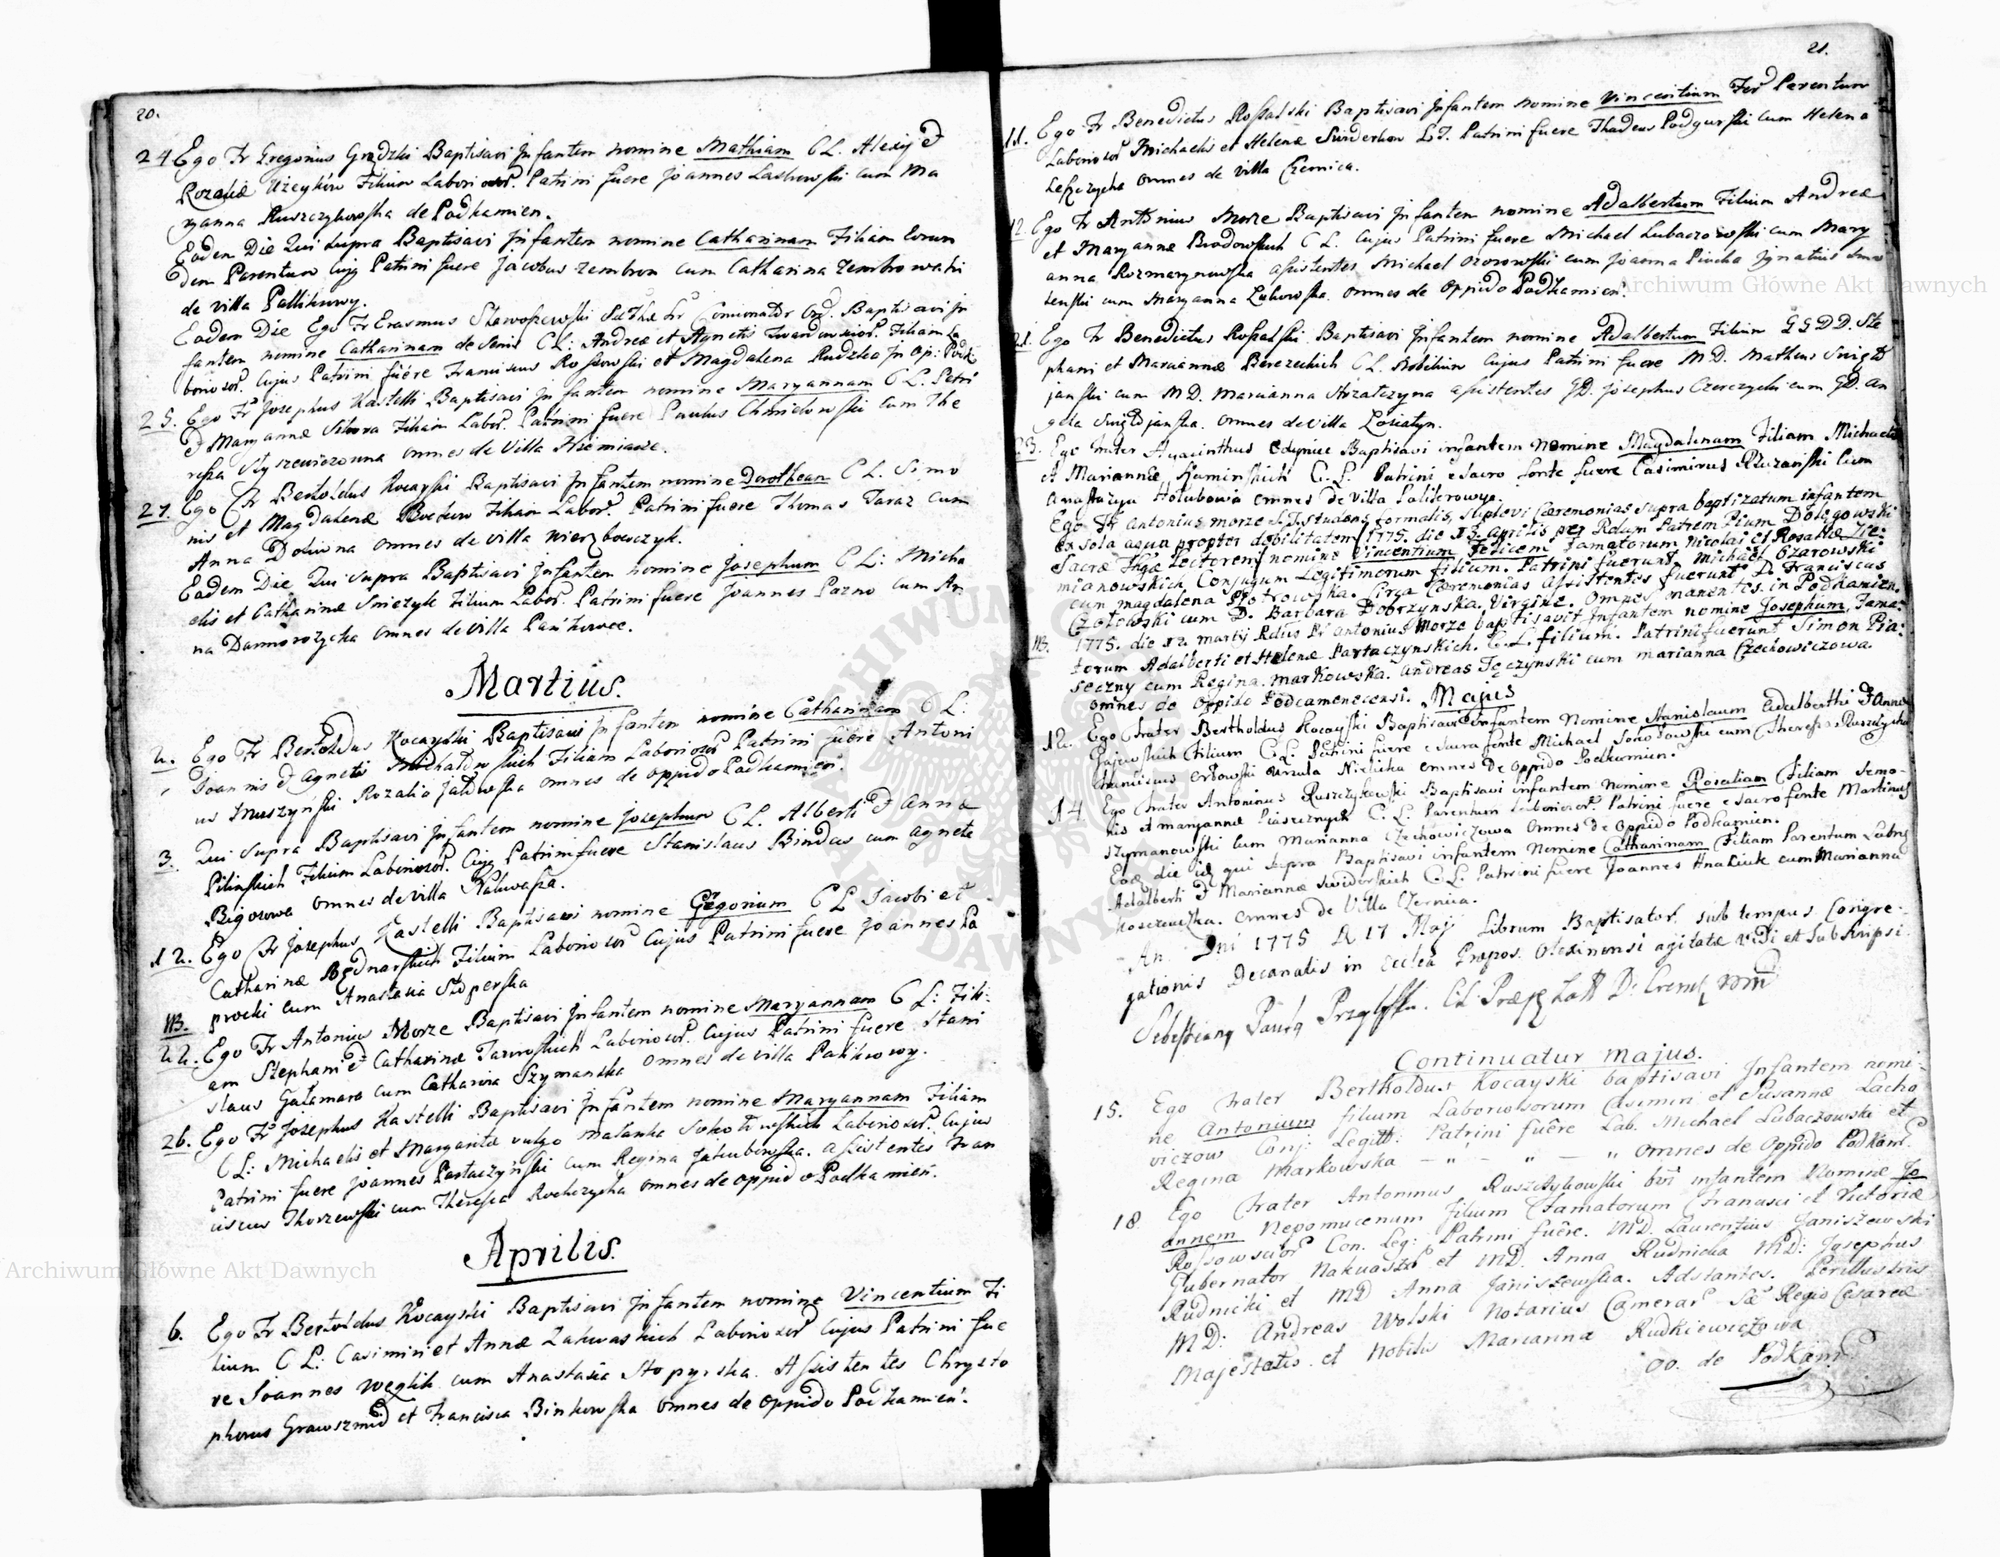 20.
24 Ego Fr Gregorius Grądzki Baptisavi Infantem nomine Mathiam C L. Alexij et
Rozaliæ Użeyków Filium Laborioror. Patrini fuere Joannes Laskowski cum Ma
ryanna Ruszczykowska de Podkamien.
Eadem Die Qui Supra Baptisavi Infantem nomine Catharinam Filiam Eorun
dem Parentum Cujq Patrini fuere Jacobus Zembron cum Catharina Zembrowaki
de villa Pallikrowy.
Eadem Die Ego Fr Erasmus Baptisavi In
fantem nomine Catharinam de Senis C L: Andreæ et Agnetis Filiam La
borioror. Cujus Patrini fuére Franciscus Rossowski et Magdalena Rudzka in Op: Podk
25. Ego Fr Josephus Kastelli Baptisavi Infantem nomine Maryannam C L. Petri
et Maryannæ Sikora Filiam Labor. Patrini fuere Paulus Chmielowski cum The
resia Styszewiczowna omnes de Villa
27. Ego Fr Bertoldus Kocayski Baptisavi Infantem nomine Dorotheam C L. Simo
nis et Magdalenæ Filiam Labor. Patrini fuere Thomas Taraz cum
Anna omnes de villa Wierzbowczyk.
Eadem Die Qui Supra Baptisavi Infantem nomine Josephum C L: Micha
elis et Catharinæ Snieżyk Filium Labor. Patrini fuere Joannes Pazno cum An
na omnes de villa Pańkowce.
Martius.
2. Ego Fr Bertoldus Kocayski Baptisavi Infantem nomine Catharinam C L:
Joannis et Agnetis Filiam Laborioror Patrini fuére Antoni
us Muszyński Rozalia omnes de oppido Podkamień.
3. Qui Supra Baptisavi Infantem nomine Josephum C L. Alberti et Annæ
Pilińskich Filium Laborioror. Cujq Patrini fuere Stanislaus Bindas cum Agnete
Bigosowa omnes de villa
12. Ego Fr Josephus Kastelli Baptisavi nomine Gregorium C L Jacobi et
Catharinæ Bednarskich Filium Laborioror Cujus Patrini fuere Joannes Ła
procki cum Anastasia Stoperska
NB.
22. Ego Fr Antonius Morze Baptisavi Infantem nomine Maryannam C L: Fili-
am Stephani et Catharinæ Laborioror. Cujus Patrini fuere Stani
slaus Gałamara cum Catharina Szymanska omnes de villa Palikrowy.
26. Ego Fr Josephus Kastelli Baptisavi Infantem nomine Maryannam Filiam
C L: Michaelis et Margaritæ vulgo Malanka Laborioror. Cujus
Patrini fuere Joannes Partaczyński cum Regina Jakubowska. assistentes Fran
ciscus cum Theresia omnes de oppido Podkamień.
Aprilis.
6. Ego Fr Bertoldus Kocayski Baptisavi Infantem nomine Vincentium Fi
lium C L: Casimiri et Annæ Laborioror Cujus Patrini fue
re Joannes Węglik cum Anastasia Stopyrska. Assistentes Chrysto
phorus et Francisca Binkowska omnes de oppido Podkamień.
21.
11. Ego Fr Benedictus Rossalski Baptisavi Infantem nomine Vincentium Parentum
Laborioror Michaelis et Helenæ L J. Patrini fuere Thadeus Podgurski cum Helena
omnes de villa Czernica.
12. Ego Fr Antonius Morze Baptisavi Infantem nomine Adalbertum Filium Andreæ
et Maryannæ Brodowskich C L. Cujus Patrini fuere Michael Lubaczowski cum Mary
anna Rozmarynowska assistentes Michael Ozorowski cum Joanna Ignatius
cum Maryanna Łukowska. omnes de oppido Podkamień.
21. Ego Fr Benedictus Rossalski Baptisavi Infantem nomine Adalbertum Filium G G D D. Ste
phani et Mariannæ Berezeckich C L. Nobilium Cujus Patrini fuere M D. Matheus Swięto
janski cum M D. Marianna Strzałczyna assistentes G D. Josephus Czerczycki cum G D. An
gela Swiętojanska. omnes de villa
23. Ego Frater Hyacinthus Baptisavi infantem Nomine Magdalenam Filiam Michaelis
et Mariannæ Kaminskich C. L. Patrini e Sacro fonte fuere Casimirus cum
Anastazya Hołubowa omnes de villa Palikrowye.
Ego Fr Antonius Morze S.T. studens formalis, suplevi Cæremonias supra baptizatum infantem
ex sola aqua propter debilitatem 1775. die 13. aprilis per Rdum Patrem Pium Dołęgowski
Sacræ Lectorem nomine Vincentium Felicem Famatorum Nicolai et Rosaliæ Zie-
mianowskich Conjugum Legitimorum filium. Patrini fuerunt Michael Czarowski
cum Magdalena Piotrowska. Circa Cæremonias Assistentes fuerunt D. Franciscus
cum D. Barbara Dobrzynska. Virgine. Omnes manentes in Podkamien.
NB. 1775. die 12 martij Rdus Pr Antonius Morze baptisavit Infantem nomine Josephum Fama-
torum Adalberti et Helenæ Partaczynskich. C. L. filium. Patrini fuerunt Simon Pia-
seczny cum Regina Markowska. Andreas Tęczynski cum Marianna Czechowiczowa.
omnes de oppido Podcamenecensi. Majus
12. Ego Frater Bertholdus Kocayski Baptisavi infantem Nomine Stanislaum Adalberthi et Annæ
Gajewskich Filium C. L. Patrini fuere e Sacro fonte Michael cum Theresia
Franciscus Orłowski Urszula Nizicka omnes De Oppido Podkamien.
14. Ego Frater Antoninus Ruszczykowski Baptisavi infantem nomine Rosaliam Filiam Simo-
nis et Maryannæ Piasecznych C. L. Parentum Laborioror. Patrini fuere e Sacro fonte Martinus
Szymanowski cum Marianna Czechowiczowa omnes De Oppido Podkamien.
Eoæ die id qui supra Baptisavi infantem nomine Catharinam Filiam Parentum
Adalberti et Mariannæ Swiderskich C. L. Patrini fuere Joannes Hnaciuk cum Marianna
omnes de Villa Czernica.
An. Dni 1775 D. 17 Maj Librum Baptisator. sub tempus Congre-
gationis Decanalis in Eccla Prapos. Olexinensi agitatæ Vidi et Subscripsi
Continuatur majus.
15. Ego Frater Bertholdus Kocayski baptisavi Infantem nomi-
ne Antonium filium Laboriosorum Casimiri et Susannæ Lacho
viczow Conj: Legitt: Patrini fuêre Lab. Michael Lubaczowski et
Regina Markowska — „ — „ — „ omnes de Oppido Podkam.
18. Ego Frater Antoninus Ruszczykowski bvi infantem Nomine Jo
annem Nepomucenum Filium Famatorum Francisci et Victoriæ
Rossowscior Con. Leg: Patrini fuêre. MD. Laurentius Janiszewski
Gubernator Nakvaszæ et MD. Anna Rudnicka MD: Josephus
Rudnicki et MD Anna Janiszewska. Adstantes. Perillustris
MD: Andreas Wolski Notarius Camerar Sæ Regio Cesareæ
Majestatis. et Nobilis Marianna Rudkiewiczowa
oo. de Podkam
Archiwum Główne Akt Dawnych
Archiwum Główne Akt Dawnych